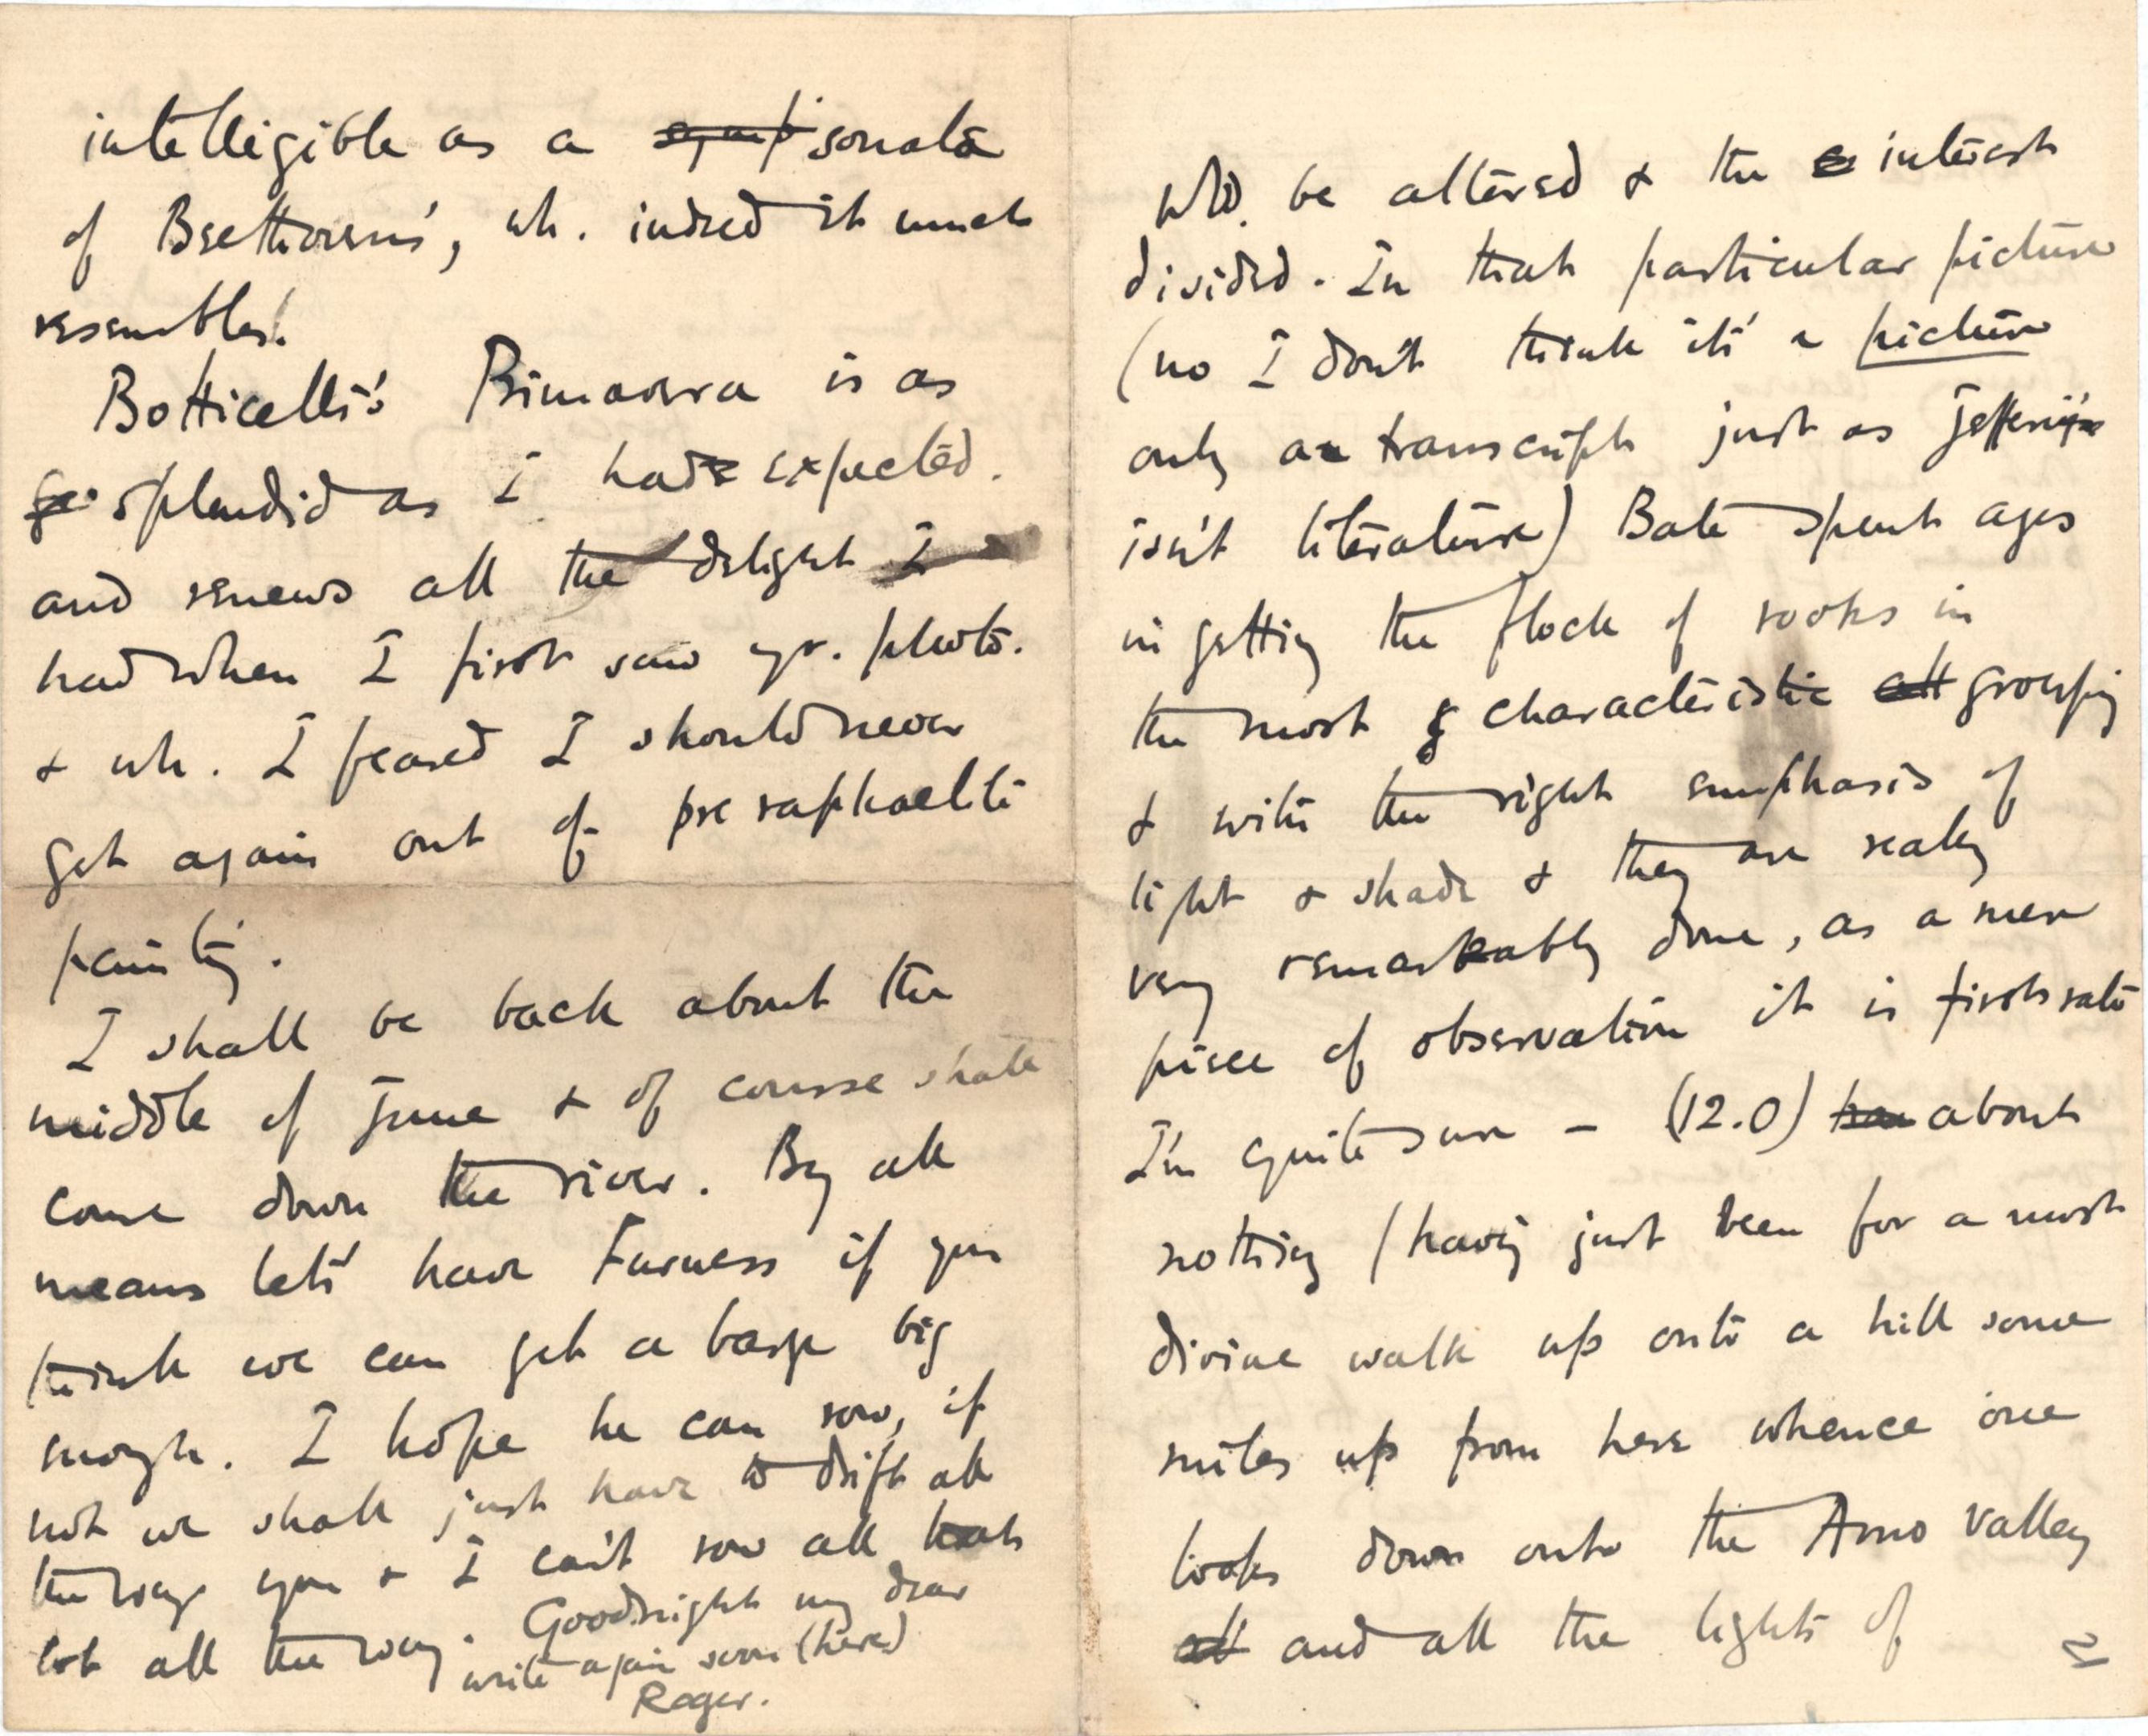 intelligible as a symp sonata
of Beethoven's, wh. indeed it much
resembles!
Botticelli's Primavera is as
splendid as I had expected.
and renews all the delight I
had when I first saw yr. photo.
& wh. I feared I should never
get again out of pre raphaelite
painting.
I shall be back about the
middle of June & of course shall
come down the river. By all
means let's have Furness if you
think we can get a barge big
enough. I hope he can row, if
not we shall just have to drift all
the way you & I can't row all that
lot all the way. Goodnight my dear
write again soon (here)
Roger.
wld. be altered & the interest
divided. In that particular picture
(no I don't think it's a picture
only a transcript just as Jefferies
isn't literature) Bate spent ages
in getting the flock of rooks in
the most characteristic grouping
& with the right emphasis of
light & shade & they are really
very remarkably done, as a mere
piece of observation it is first rate
I'm quite sure – (12.0) about
nothing (having just been for a most
divine walk up onto a hill some
miles up from here whence one
looks down onto the Arno valley
all and all the lights of